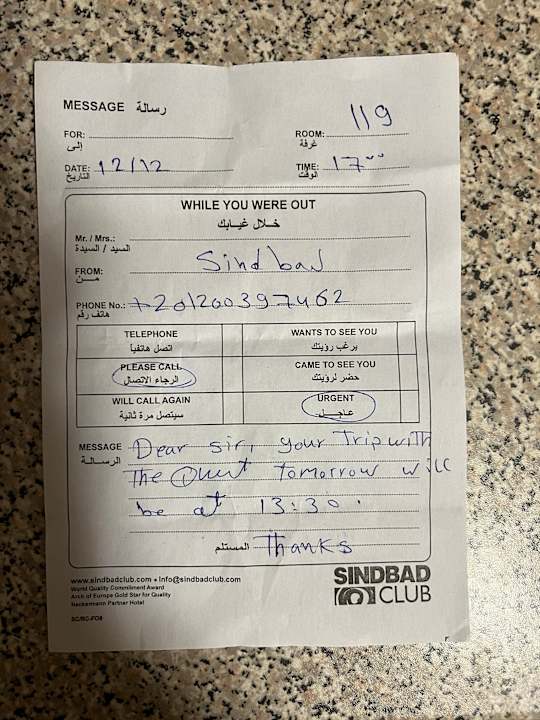 MESSAGE رسالة
FOR:
إلى
ROOM: 119
غرفة
DATE: 12/12
التاريخ
TIME: 17°°
الوقت
WHILE YOU WERE OUT
خلال غيابك
Mr. / Mrs.:
السيد / السيدة
FROM: Sindbad
مـن
PHONE No.: +201200397462
هاتف رقم
TELEPHONE
اتصل هاتفياً
WANTS TO SEE YOU
يرغب رؤيتك
PLEASE CALL
الرجاء الاتصال
CAME TO SEE YOU
حضر لرؤيتك
WILL CALL AGAIN
سيتصل مرة ثانية
URGENT
عاجل
MESSAGE Dear sir, your Trip with
الرسالة
The tomorrow will
be at 13:30.
المستلم Thanks
www.sindbadclub.com • info@sindbadclub.com
World Quality Commitment Award
Arch of Europe Gold Star for Quality
Neckermann Partner Hotel
SINDBAD
CLUB